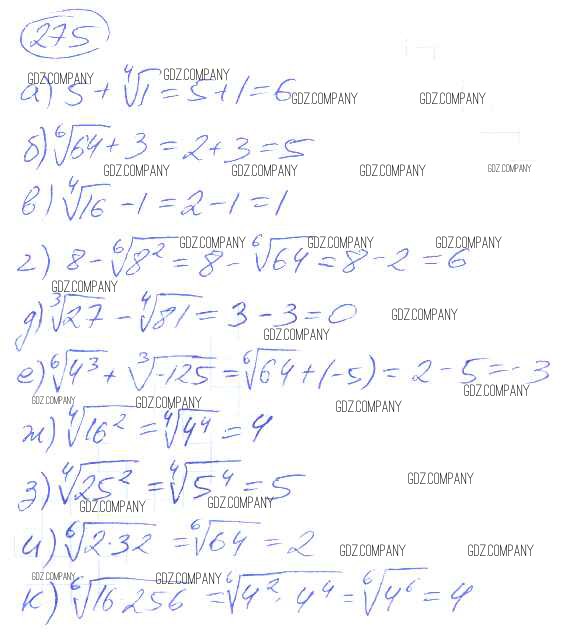 275
GDZ.COMPANY GDZ.COMPANY
а) 5 + ⁴√1 = 5 + 1 = 6 GDZ.COMPANY GDZ.COMPANY
б) ⁶√64 + 3 = 2 + 3 = 5
GDZ.COMPANY GDZ.COMPANY GDZ.COMPANY GDZ.COMPANY
в) ⁴√16 - 1 = 2 - 1 = 1
GDZ.COMPANY GDZ.COMPANY GDZ.COMPANY
г) 8 - ⁶√8² = 8 - ⁶√64 = 8 - 2 = 6
GDZ.COMPANY
д) ³√27 - ⁴√81 = 3 - 3 = 0 GDZ.COMPANY
GDZ.COMPANY
е) ⁶√4³ + ³√-125 = ⁶√64 + (-5) = 2 - 5 = -3
GDZ.COMPANY GDZ.COMPANY GDZ.COMPANY
ж) ⁴√16² = ⁴√4⁴ = 4
з) ⁴√25² = ⁴√5⁴ = 5 GDZ.COMPANY
GDZ.COMPANY GDZ.COMPANY
и) ⁶√2·32 = ⁶√64 = 2 GDZ.COMPANY GDZ.COMPANY
GDZ.COMPANY GDZ.COMPANY
к) ⁶√16·256 = ⁶√4²·4⁴ = ⁶√4⁶ = 4